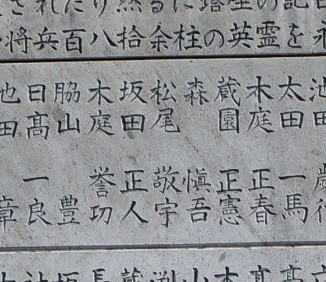 されたり然るに塔壁の記
将兵百八拾余柱の英霊を
池田
太田 一馬
木庭 正春
蔵園 正憲
森 愼吾
松尾 敬宇
坂田 正人
木庭 誉功
脇山 豊
日高 一良
池田 章